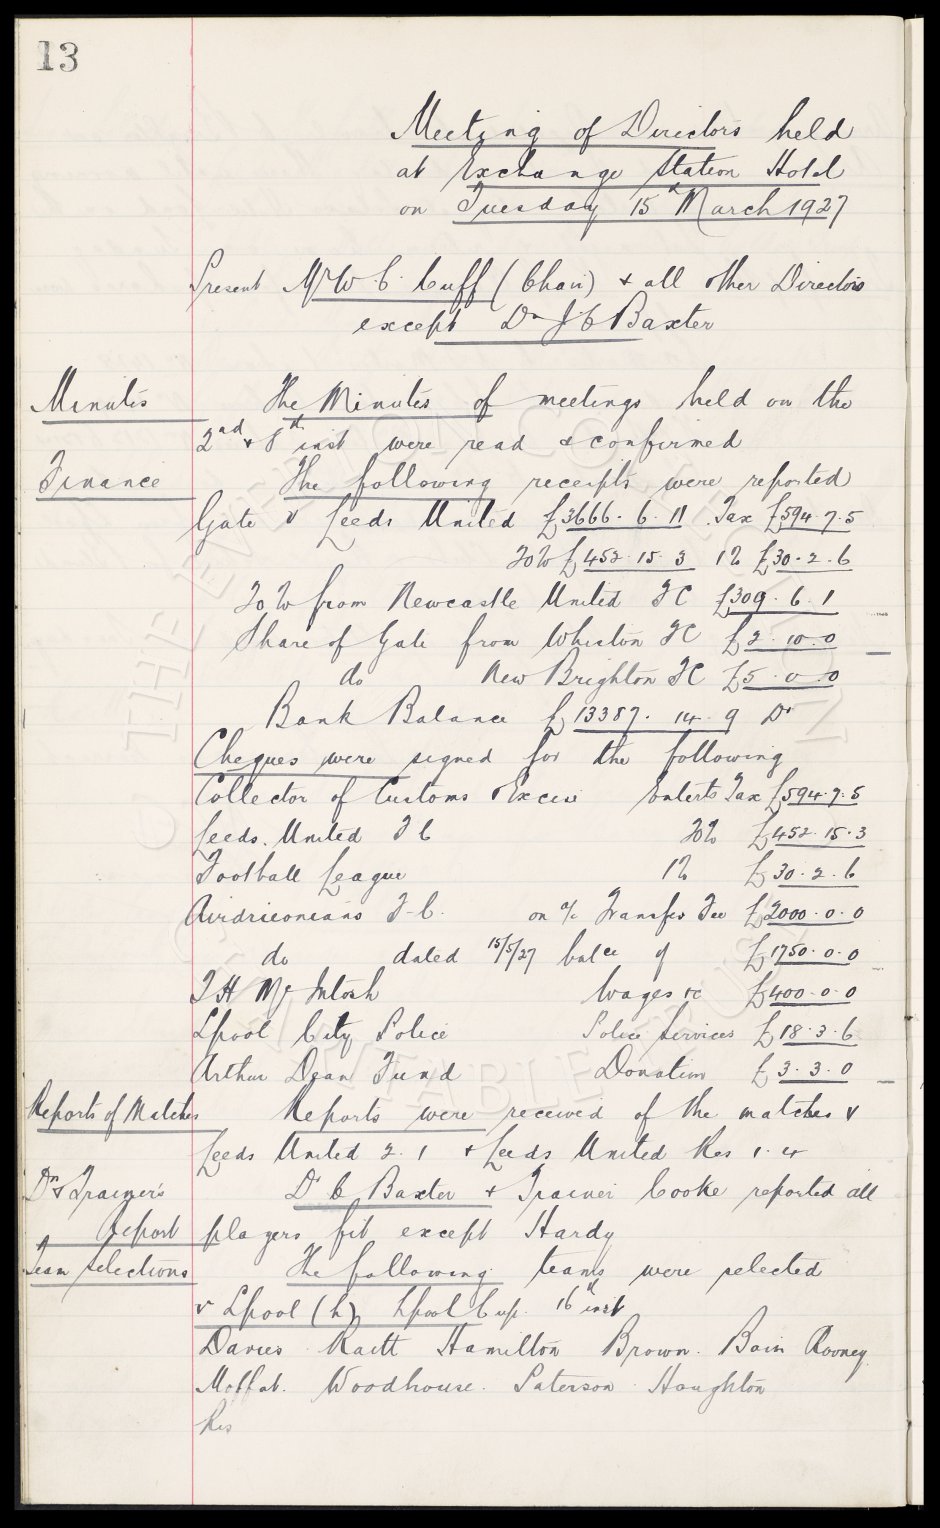 13
Meeting of Directors held
at Exchange Station Hotel
on Tuesday 15th March 1927
Present Mr W. C. Cuff (Chair) & all other Directors
except Dr J C Baxter
Minutes The Minutes of meetings held on the
2nd & 8th inst were read & confirmed
Finance The following receipts were reported
Gate v Leeds United £3666. 6. 11 Tax £594. 7. 5
20% £452. 15. 3 1% £30. 2. 6
20% from Newcastle United FC £309. 6. 1
Share of Gate from Whiston FC £2. 10. 0
do New Brighton FC £5. 0. 0
Bank Balance £13387. 14. 9 Dr
Cheques were signed for the following
Collector of Customs & Excise Enterts Tax £594. 7. 5
Leeds. United F C 20% £452. 15. 3
Football League 1% £30. 2. 6
Airdrieonians F. C. on a/c Transfer Fee £2000. 0. 0
do dated 15/5/27 balce of £1750. 0. 0
T H McIntosh Wages &c £400. 0. 0
Lpool City Police Police Services £18. 3. 6
Arthur Dean Fund Donation £3. 3. 0
Reports of Matches Reports were received of the matches v
Leeds United 2. 1 & Leeds United Res 1. 4
Dr & Trainer's Dr C Baxter & Trainer Cooke reported all
Report players fit except Hardy
Team Selections The following teams were selected
v Lpool (h) Lpool Cup. 16th inst
Davies Raitt Hamilton Brown. Bain Rooney
Moffat. Woodhouse. Paterson Houghton
Res
THE EVERTON COLLECTION
CHARITABLE TRUST